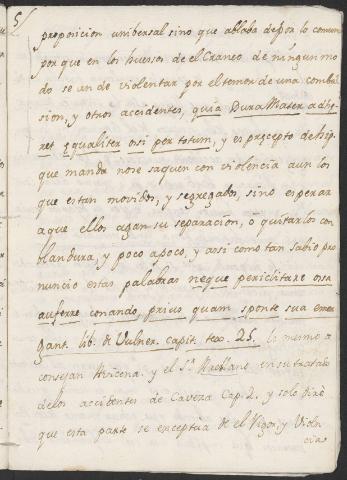 5/
proposicion unibersal sino que ablaba de por lo comun
por que en los huesos de el Craneo de ningun mo
do se an de violentar por el temor de una combul
sion, y otros accidentes, quia Dura Mater adhe
ret equaliter ossi per totum, y es precepto de hip
que manda no se saquen con violencia aun los
que estan movidos, y segregados, sino esperar
a que ellos agan su separacion, ô quitarlos con
blandura, y poco apoco, y assi como tan sabio pro
nuncio estas palabras neque periclitare ossa
auferre conando, prius quam sponte sua emer
gant. lib. de Vulner. capit. tex. 25. lo mesmo a
consejan Avicena, y el Sr. Arellano, en su tratado
de los accidentes de Caveza Cap. 2. y solo diré
que esta parte se exceptua de el Rigor y Violen
cia